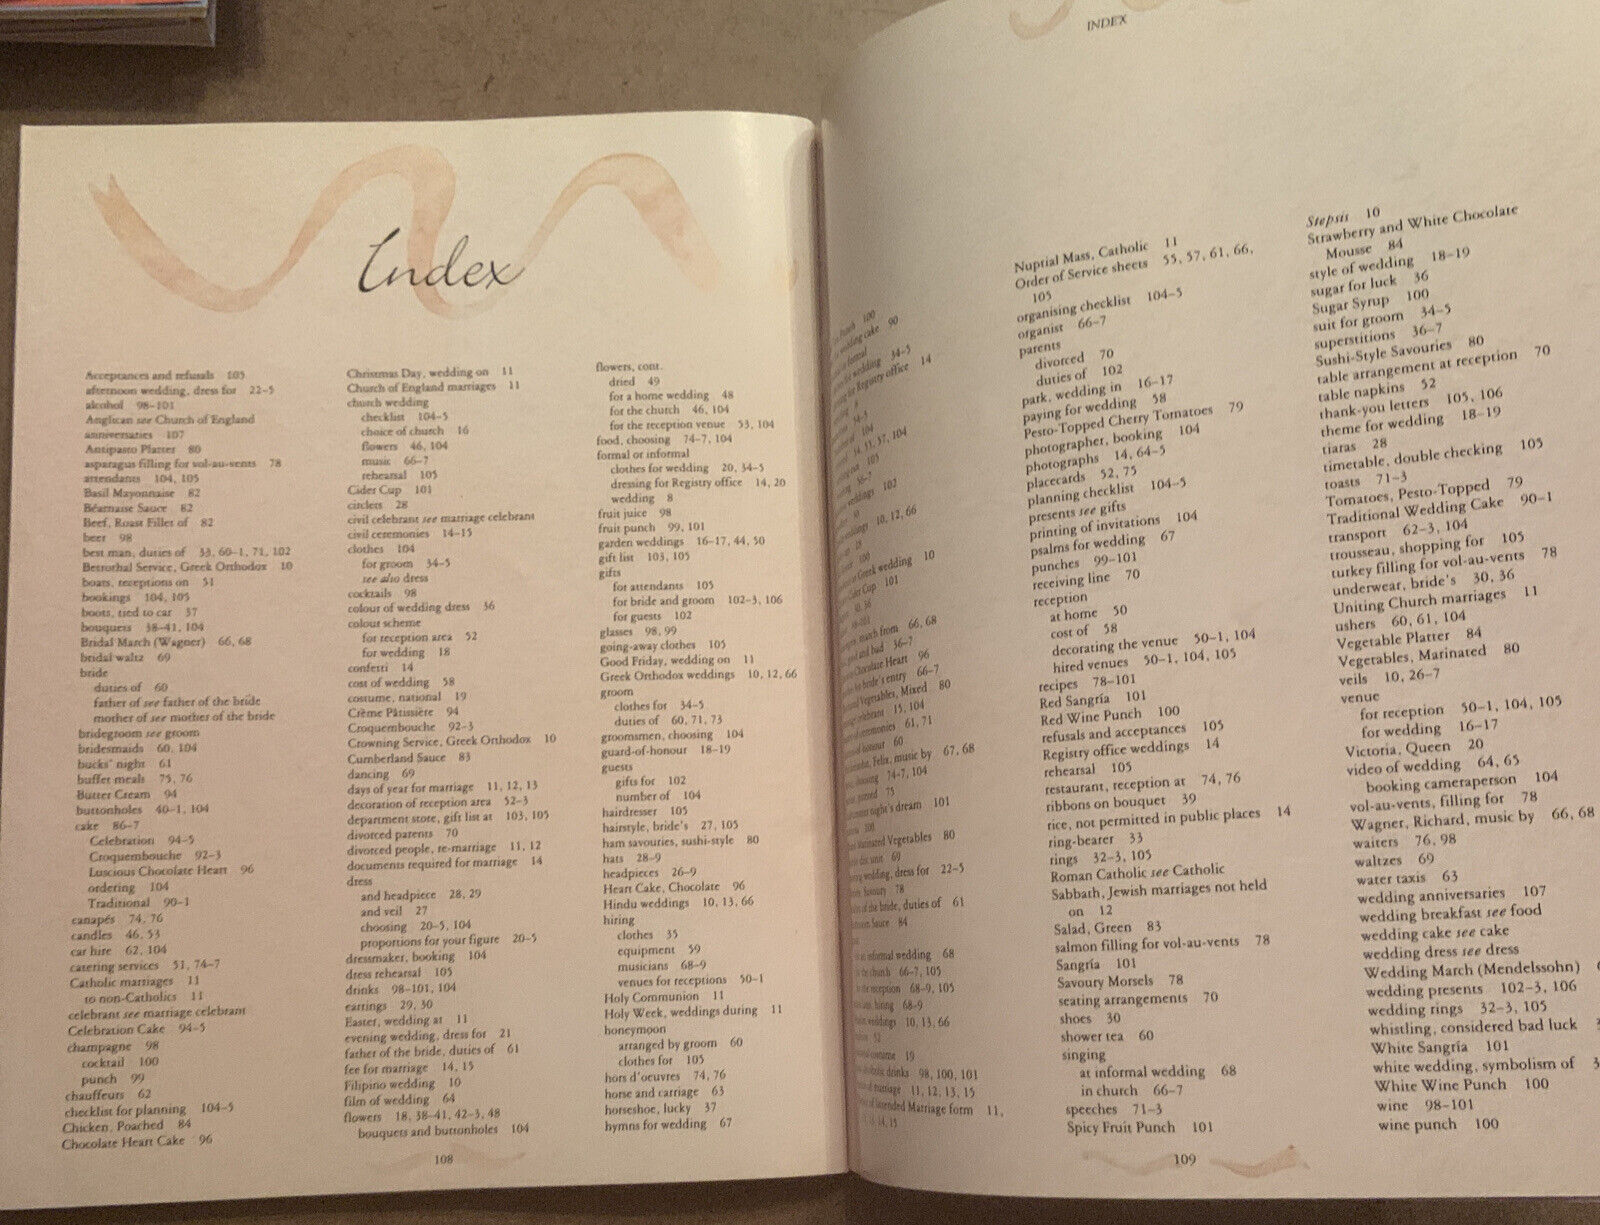 Index
Acceptances and refusals 105
afternoon wedding, dress for 22–5
alcohol 98–101
Anglican see Church of England
anniversaries 107
Antipasto Platter 80
asparagus filling for vol-au-vents 78
attendants 104, 105
Basil Mayonnaise 82
Béarnaise Sauce 82
Beef, Roast Fillet of 82
beer 98
best man, duties of 33, 60–1, 71, 102
Betrothal Service, Greek Orthodox 10
boats, receptions on 51
bookings 104, 105
boots, tied to car 37
bouquets 38–41, 104
Bridal March (Wagner) 66, 68
bridal waltz 69
bride
duties of 60
father of see father of the bride
mother of see mother of the bride
bridegroom see groom
bridesmaids 60, 104
bucks' night 61
buffet meals 75, 76
Butter Cream 94
buttonholes 40–1, 104
cake 86–7
Celebration 94–5
Croquembouche 92–3
Luscious Chocolate Heart 96
ordering 104
Traditional 90–1
canapés 74, 76
candles 46, 53
car hire 62, 104
catering services 51, 74–7
Catholic marriages 11
to non-Catholics 11
celebrant see marriage celebrant
Celebration Cake 94–5
champagne 98
cocktail 100
punch 99
chauffeurs 62
checklist for planning 104–5
Chicken, Poached 84
Chocolate Heart Cake 96
Christmas Day, wedding on 11
Church of England marriages 11
church wedding
checklist 104–5
choice of church 16
flowers 46, 104
music 66–7
rehearsal 105
Cider Cup 101
circlets 28
civil celebrant see marriage celebrant
civil ceremonies 14–15
clothes 104
for groom 34–5
see also dress
cocktails 98
colour of wedding dress 36
colour scheme
for reception area 52
for wedding 18
confetti 14
cost of wedding 58
costume, national 19
Crème Pâtissière 94
Croquembouche 92–3
Crowning Service, Greek Orthodox 10
Cumberland Sauce 83
dancing 69
days of year for marriage 11, 12, 13
decoration of reception area 52–3
department store, gift list at 103, 105
divorced parents 70
divorced people, re-marriage 11, 12
documents required for marriage 14
dress
and headpiece 28, 29
and veil 27
choosing 20–5, 104
proportions for your figure 20–5
dressmaker, booking 104
dress rehearsal 105
drinks 98–101, 104
earrings 29, 30
Easter, wedding at 11
evening wedding, dress for 21
father of the bride, duties of 61
fee for marriage 14, 15
Filipino wedding 10
film of wedding 64
flowers 18, 38–41, 42–3, 48
bouquets and buttonholes 104
flowers, cont.
dried 49
for a home wedding 48
for the church 46, 104
for the reception venue 53, 104
food, choosing 74–7, 104
formal or informal
clothes for wedding 20, 34–5
dressing for Registry office 14, 20
wedding 8
fruit juice 98
fruit punch 99, 101
garden weddings 16–17, 44, 50
gift list 103, 105
gifts
for attendants 105
for bride and groom 102–3, 106
for guests 102
glasses 98, 99
going-away clothes 105
Good Friday, wedding on 11
Greek Orthodox weddings 10, 12, 66
groom
clothes for 34–5
duties of 60, 71, 73
groomsmen, choosing 104
guard-of-honour 18–19
guests
gifts for 102
number of 104
hairdresser 105
hairstyle, bride's 27, 105
ham savouries, sushi-style 80
hats 28–9
headpieces 26–9
Heart Cake, Chocolate 96
Hindu weddings 10, 13, 66
hiring
clothes 35
equipment 59
musicians 68–9
venues for receptions 50–1
Holy Communion 11
Holy Week, weddings during 11
honeymoon
arranged by groom 60
clothes for 105
hors d'oeuvres 74, 76
horse and carriage 63
horseshoe, lucky 37
hymns for wedding 67
108
INDEX
Punch 100
wedding cake 90
formal
wedding 34–5
Registry office 14
104
105
102
10, 12, 66
Greek wedding 10
Cup 101
march from 66, 68
and bad 36–7
Chocolate Heart 96
bride's entry 66–7
Vegetables, Mixed 80
celebrant 15, 104
ceremonies 61, 71
honour 60
Felix, music by 67, 68
74–7, 104
75
night's dream 101
Marinated Vegetables 80
unit 69
wedding, dress for 22–5
78
of the bride, duties of 61
Sauce 84
at informal wedding 68
church 66–7, 105
reception 68–9, 105
hiring 68–9
weddings 10, 13, 66
52
costume 19
drinks 98, 100, 101
of marriage 11, 12, 13, 15
of Intended Marriage form 11,
14, 15
Nuptial Mass, Catholic 11
Order of Service sheets 55, 57, 61, 66,
105
organising checklist 104–5
organist 66–7
parents
divorced 70
duties of 102
park, wedding in 16–17
paying for wedding 58
Pesto-Topped Cherry Tomatoes 79
photographer, booking 104
photographs 14, 64–5
placecards 52, 75
planning checklist 104–5
presents see gifts
printing of invitations 104
psalms for wedding 67
punches 99–101
receiving line 70
reception
at home 50
cost of 58
decorating the venue 50–1, 104
hired venues 50–1, 104, 105
recipes 78–101
Red Sangría 101
Red Wine Punch 100
refusals and acceptances 105
Registry office weddings 14
rehearsal 105
restaurant, reception at 74, 76
ribbons on bouquet 39
rice, not permitted in public places 14
ring-bearer 33
rings 32–3, 105
Roman Catholic see Catholic
Sabbath, Jewish marriages not held
on 12
Salad, Green 83
salmon filling for vol-au-vents 78
Sangría 101
Savoury Morsels 78
seating arrangements 70
shoes 30
shower tea 60
singing
at informal wedding 68
in church 66–7
speeches 71–3
Spicy Fruit Punch 101
Stepsis 10
Strawberry and White Chocolate
Mousse 84
style of wedding 18–19
sugar for luck 36
Sugar Syrup 100
suit for groom 34–5
superstitions 36–7
Sushi-Style Savouries 80
table arrangement at reception 70
table napkins 52
thank-you letters 105, 106
theme for wedding 18–19
tiaras 28
timetable, double checking 105
toasts 71–3
Tomatoes, Pesto-Topped 79
Traditional Wedding Cake 90–1
transport 62–3, 104
trousseau, shopping for 105
turkey filling for vol-au-vents 78
underwear, bride's 30, 36
Uniting Church marriages 11
ushers 60, 61, 104
Vegetable Platter 84
Vegetables, Marinated 80
veils 10, 26–7
venue
for reception 50–1, 104, 105
for wedding 16–17
Victoria, Queen 20
video of wedding 64, 65
booking cameraperson 104
vol-au-vents, filling for 78
Wagner, Richard, music by 66, 68
waiters 76, 98
waltzes 69
water taxis 63
wedding anniversaries 107
wedding breakfast see food
wedding cake see cake
wedding dress see dress
Wedding March (Mendelssohn)
wedding presents 102–3, 106
wedding rings 32–3, 105
whistling, considered bad luck
White Sangría 101
white wedding, symbolism of
White Wine Punch 100
wine 98–101
wine punch 100
109